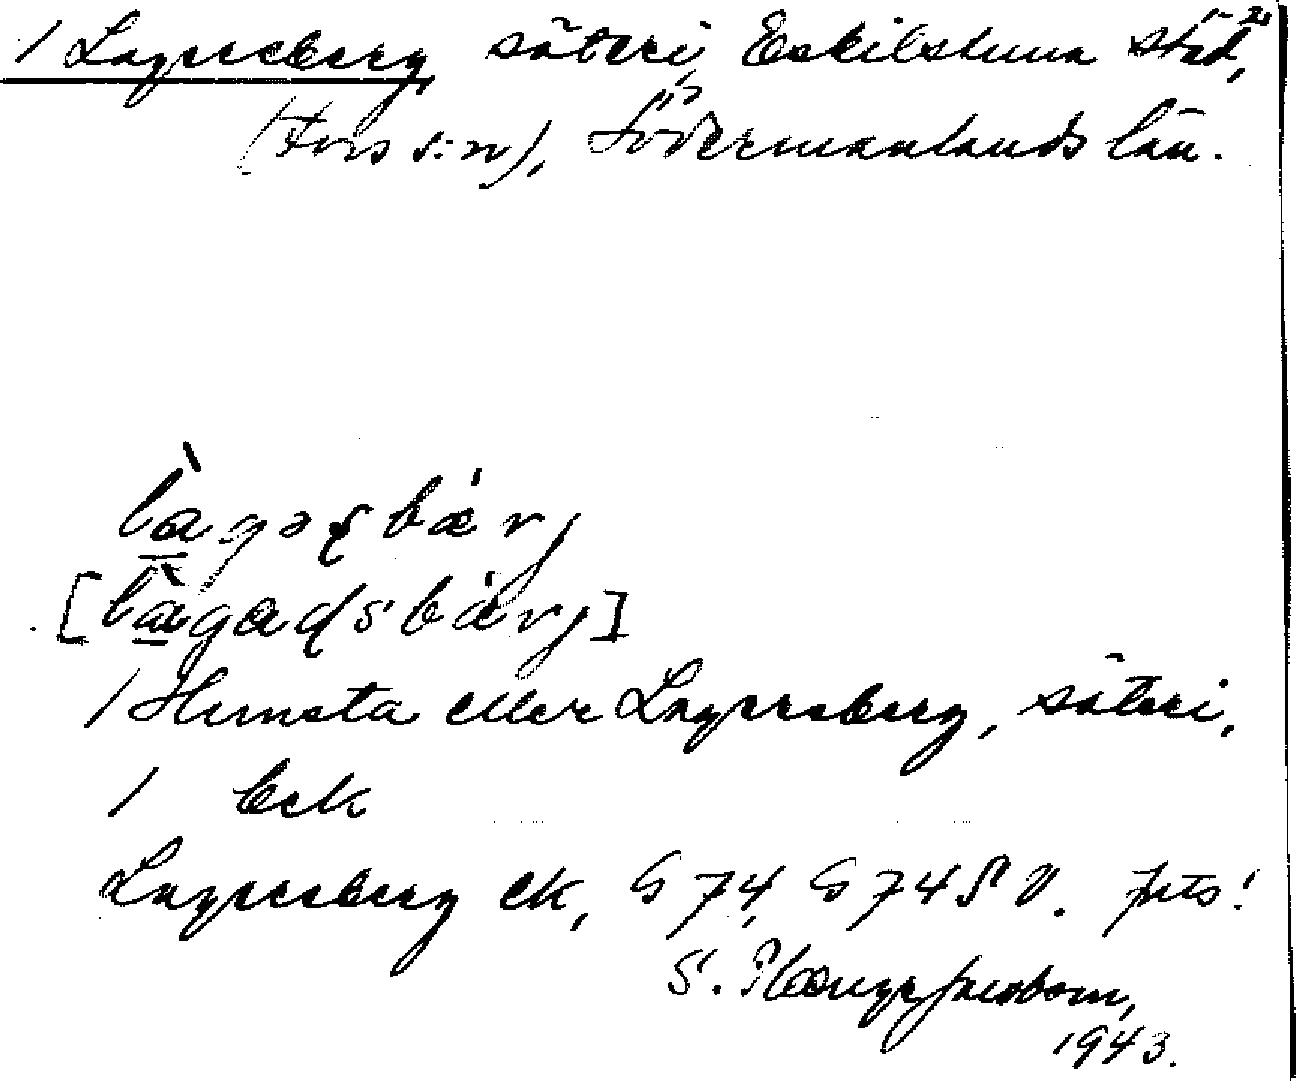 1 Lagersberg, säteri, Eskilstuna stad,
(Fors s:n), Södermanlands län.
làgəʂbǽrj
[làgaɖsbǽrj]
1 Humsta eller Lagersberg, säteri,
1 Eck
Lagersberg ek, G 74, G 74 SV.
S.
1943.